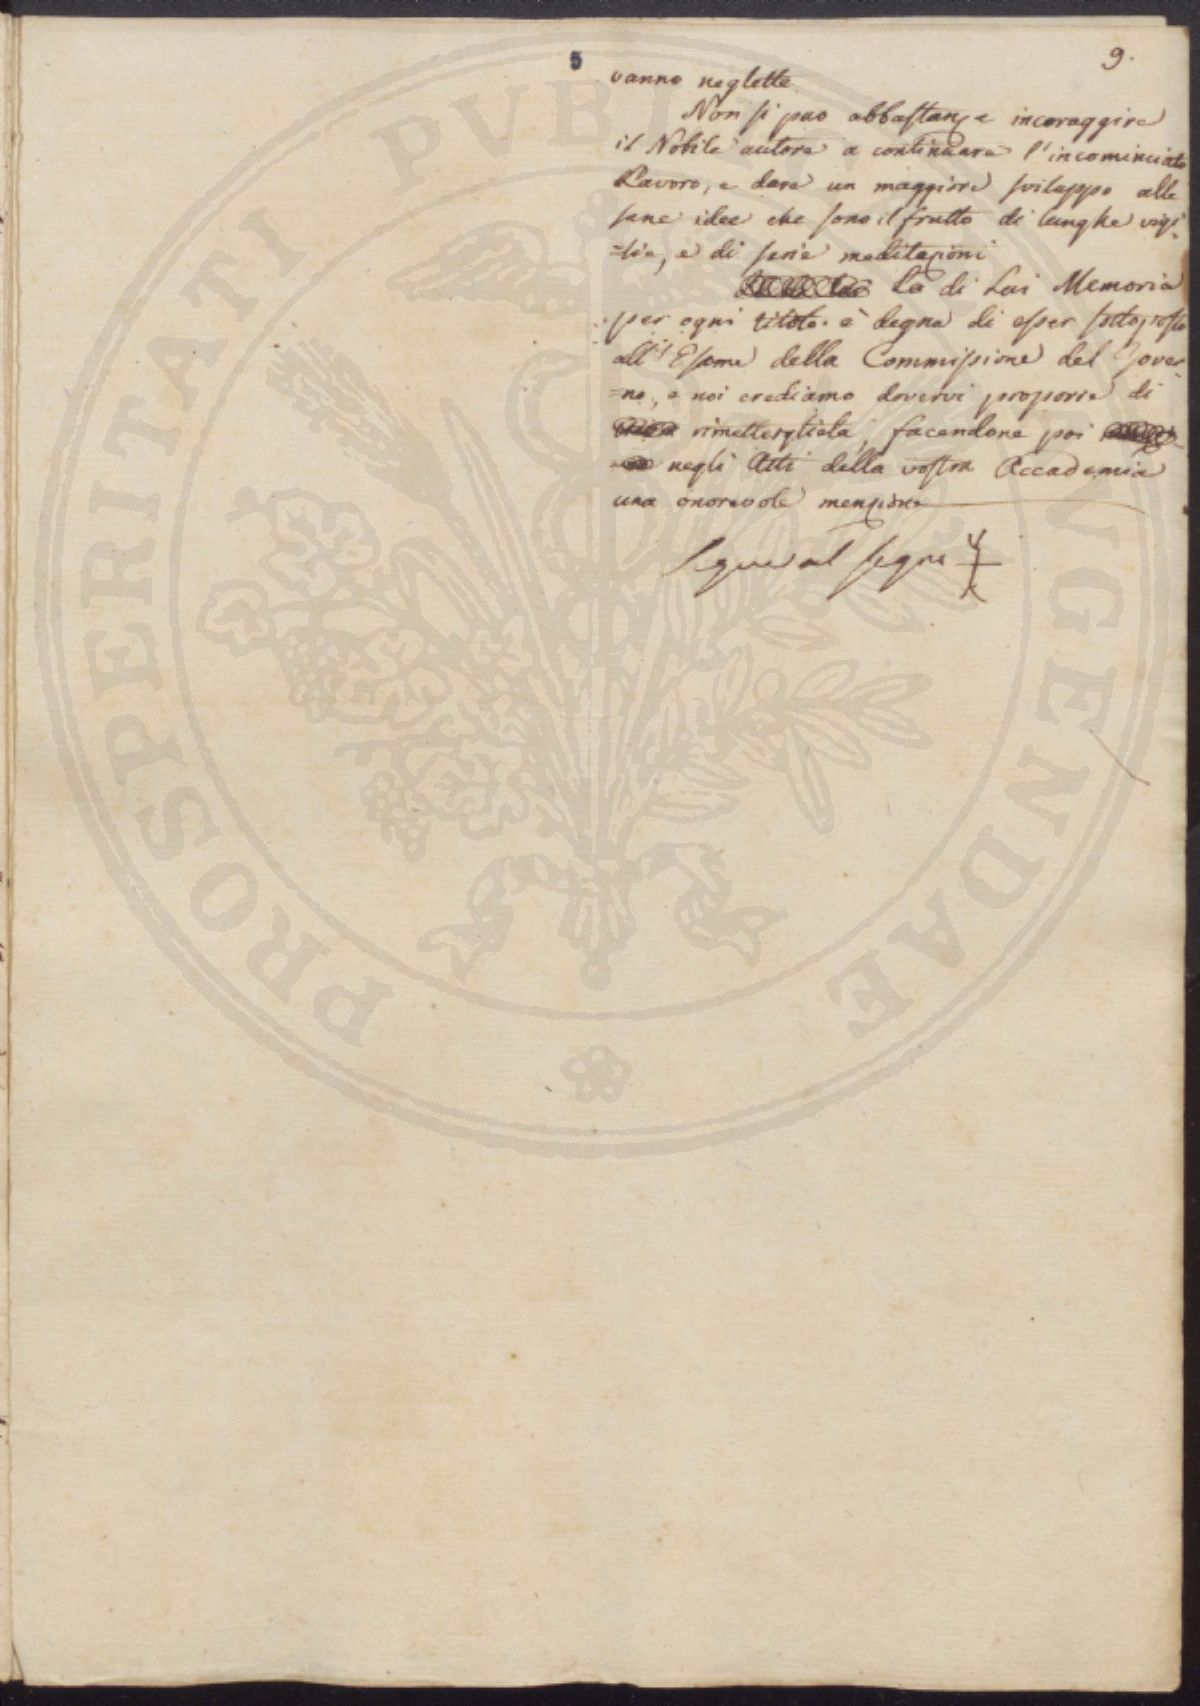 5
9.
vanno neglette
Non si può abbastanza incoraggire
il Nobile autore a continuare l'incominciato
Lavoro, e dare un maggiore sviluppo alle
sane idee che sono il frutto di lunghe vigi-
=lie, e di serie meditazioni
La di Lui Memoria
per ogni titolo è degna di esser sottoposta
all'Esame della Commissione del Gover-
=no, e noi crediamo dovervi proporre di
rimettergliela, facendone poi
negli Atti della vostra Accademia
una onorevole menzione
Segue al segno
PROSPERITATI PVBLICAE AVGENDAE